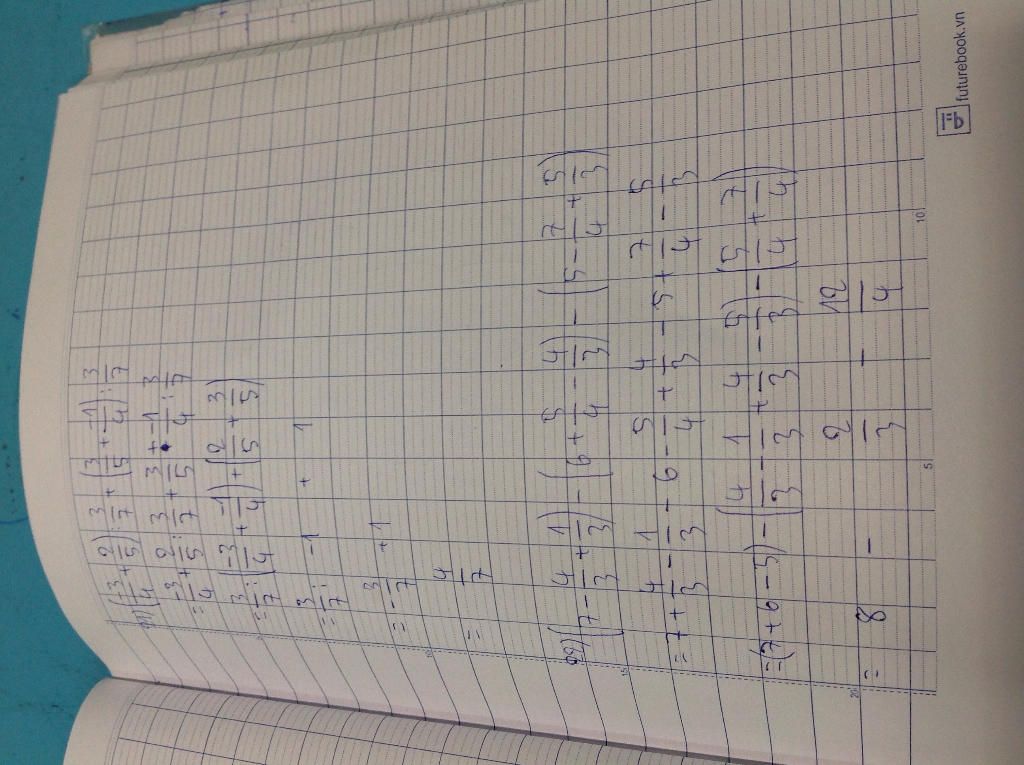 21) (-3/4 + 2/5) : 3/7 + (3/5 + -1/4) : 3/7
= -3/4 + 2/5 : 3/7 + 3/5 + -1/4 : 3/7
= 3/7 : (-3/4 + -1/4) + (2/5 + 3/5)
= 3/7 : -1 + 1
= - 3/7 + 1
= 4/7
22) (7 - 4/3 + 1/3) - (6 + 5/4 - 4/3) - (5 - 7/4 + 5/3)
= 7 + 4/3 - 1/3 - 6 - 5/4 + 4/3 - 5 + 7/4 - 5/3
= (7 + 6 - 5) - (4/3 - 1/3 + 4/3 - 5/3) - (5/4 + 7/4)
= 8 - 2/3 - 12/4
futurebook.vn
5
10
15
20